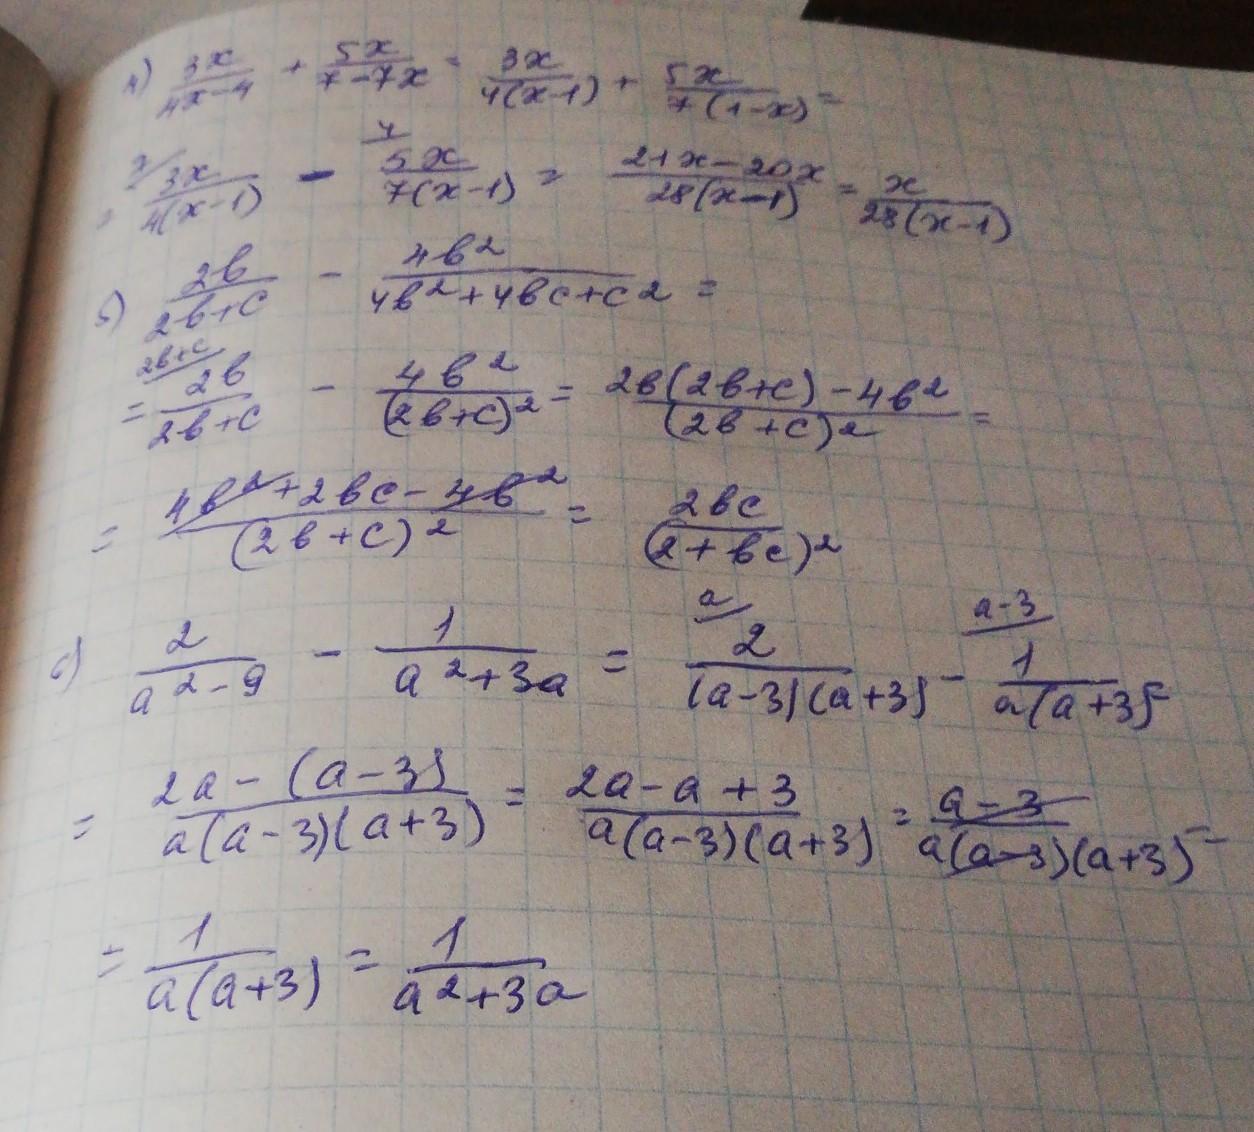 а) 3x/(4x-4) + 5x/(7-7x) = 3x/(4(x-1)) + 5x/(7(1-x)) =
= 7/ 3x/(4(x-1)) - 4/ 5x/(7(x-1)) = (21x-20x)/(28(x-1)) = x/(28(x-1))
б) 2b/(2b+c) - 4b²/(4b²+4bc+c²) =
= 2b+c/ 2b/(2b+c) - 4b²/(2b+c)² = (2b(2b+c)-4b²)/(2b+c)² =
= (4b²+2bc-4b²)/(2b+c)² = 2bc/(2+bc)²
в) 2/(a²-9) - 1/(a²+3a) = a/ 2/((a-3)(a+3)) - a-3/ 1/(a(a+3)) =
= (2a-(a-3))/(a(a-3)(a+3)) = (2a-a+3)/(a(a-3)(a+3)) = (a-3)/(a(a-3)(a+3)) =
= 1/(a(a+3)) = 1/(a²+3a)